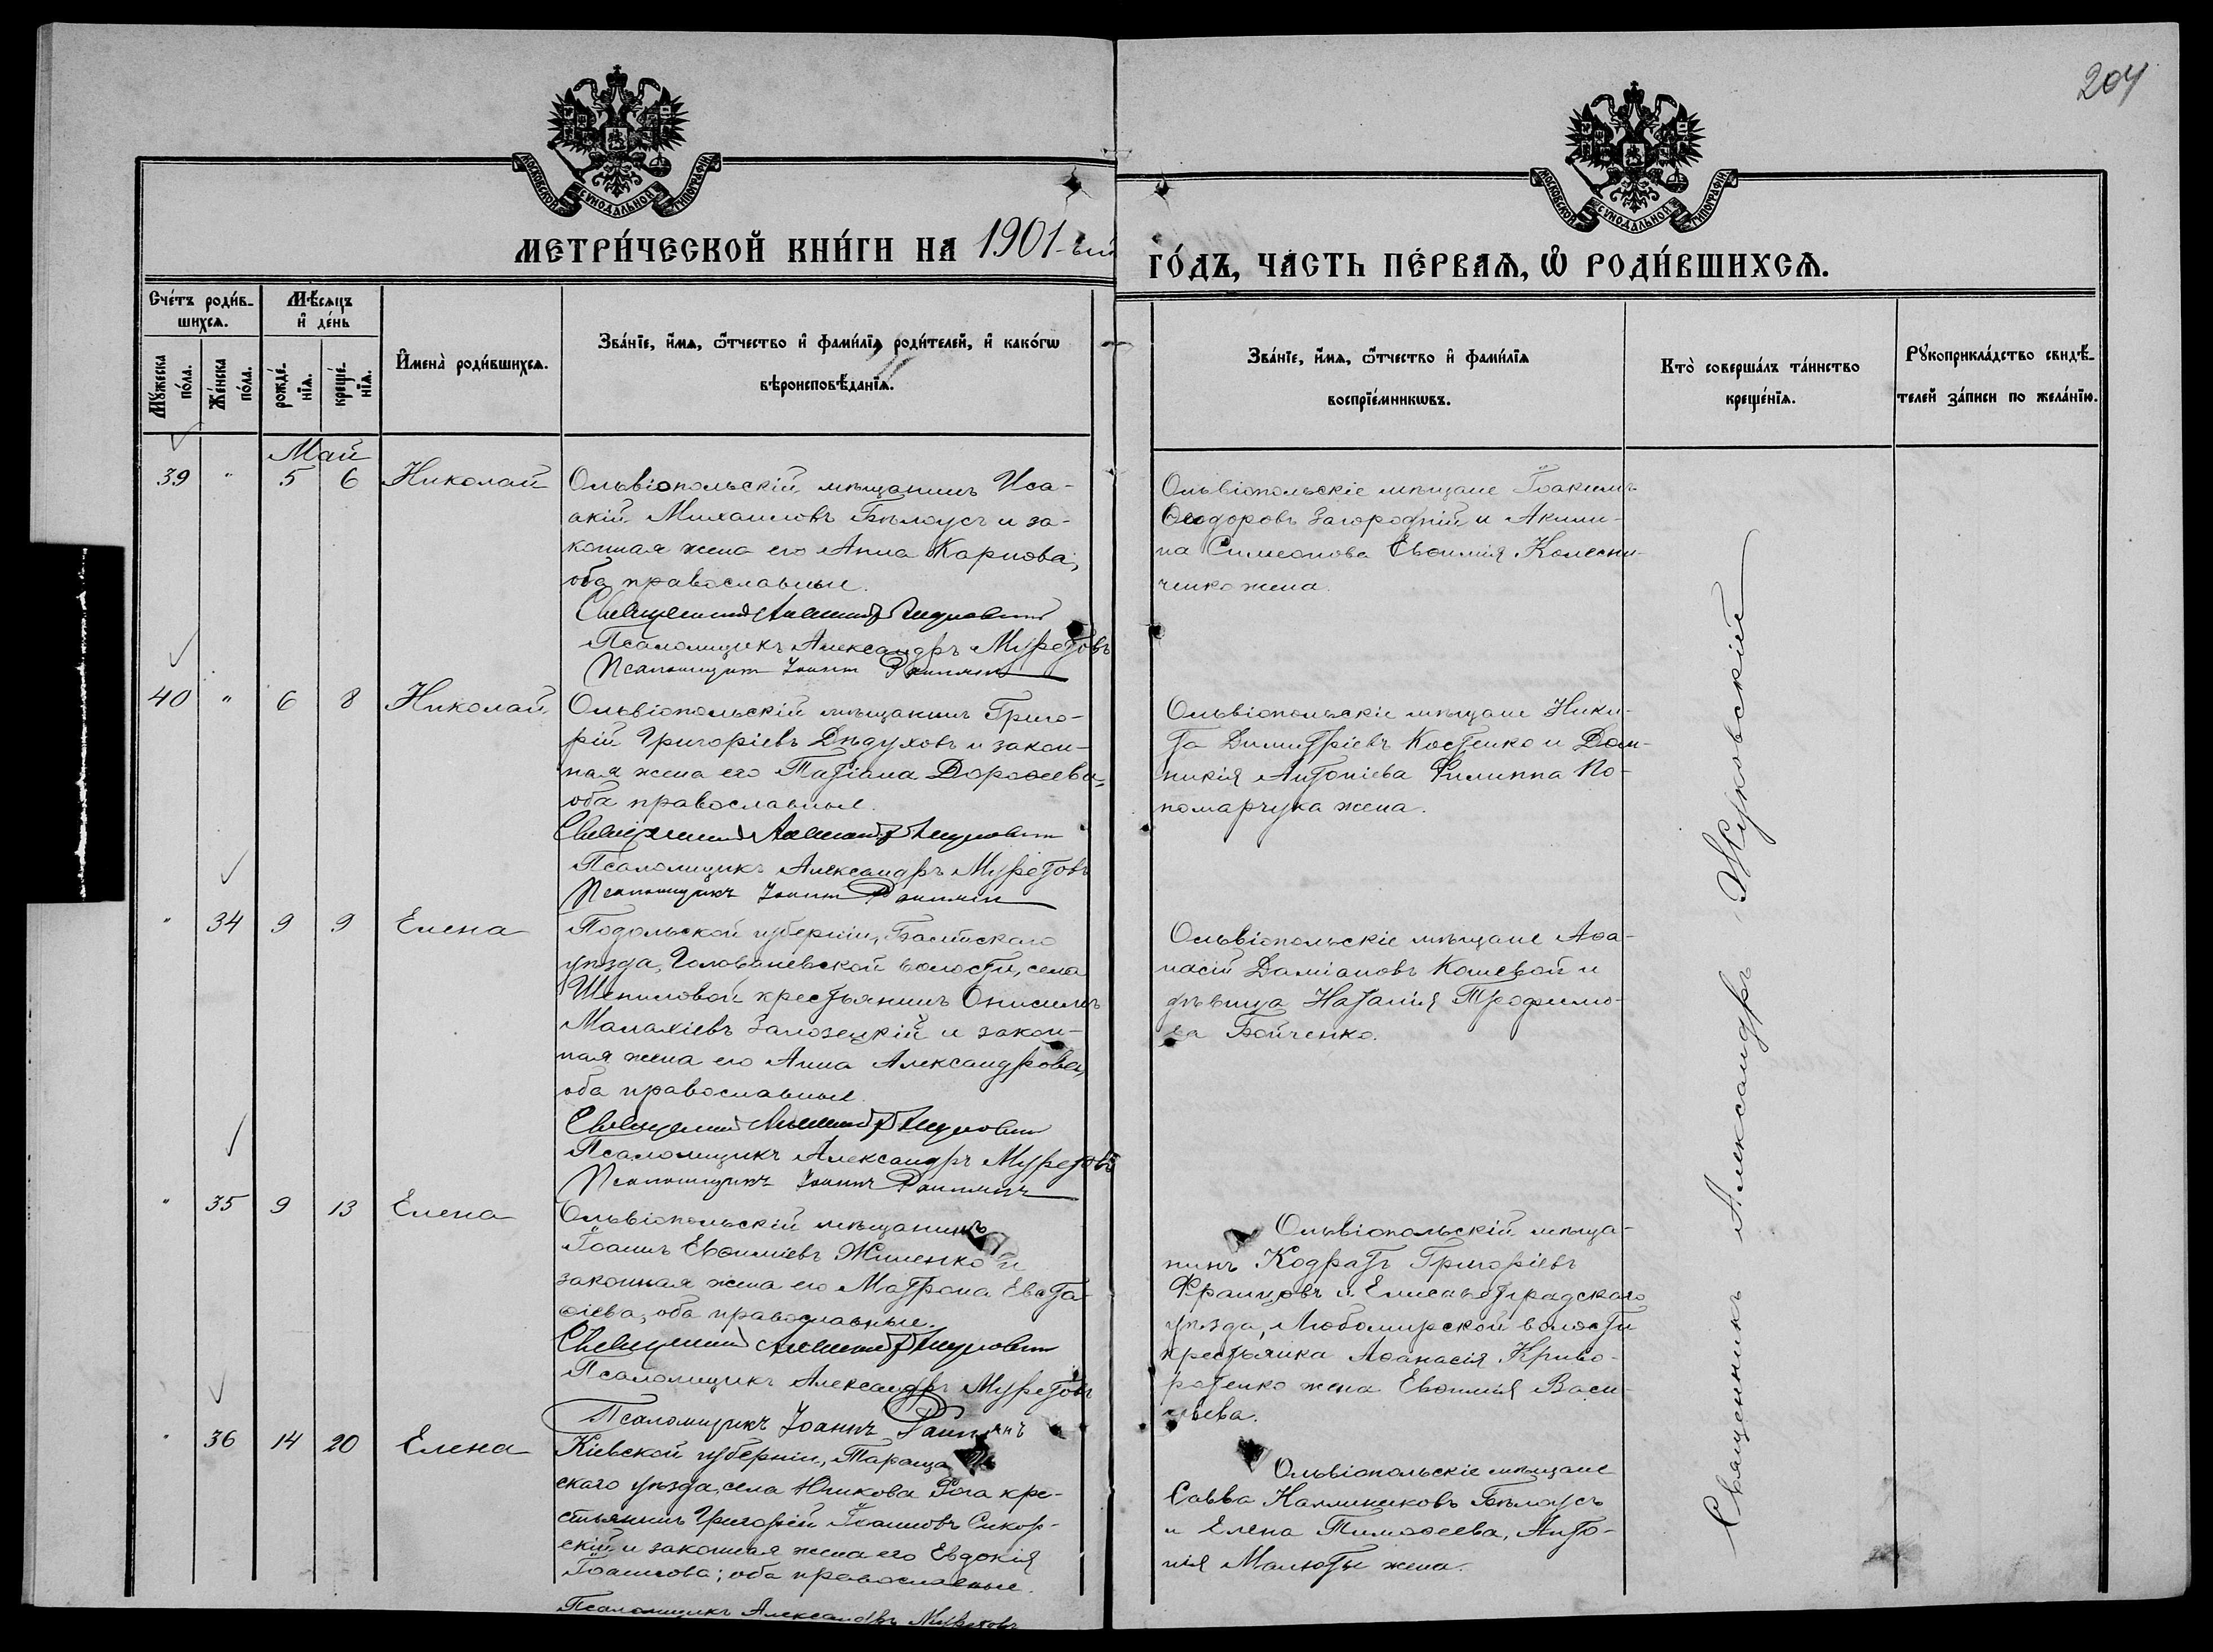 204
МОСКОВСКОЙ СѴНОДАЛЬНОЙ ТИПОГРАФІИ
МОСКОВСКОЙ СѴНОДАЛЬНОЙ ТИПОГРАФІИ
МЕТРИ́ЧЕСКОЙ КНИ́ГИ НА 1901-ый ГО́ДЪ, ЧАСТЬ ПЕ́РВАѦ, Ѡ РОДИ́ВШИХСѦ.
Сче́тъ роди́в-
шихсѧ.
Мꙋ́жеска
по́ла.
Же́нска
по́ла.
Мѣ́сѧцъ
и҆ де́нь
рожде́-
нїѧ.
креще́-
нїѧ.
И҆мена̀ роди́вшихсѧ.
Зва́нїе, и҆́мѧ, ѻ҆́тчество и҆ фами́лїѧ роди́телей, и҆ како́гѡ
вѣроисповѣ́данїѧ.
Зва́нїе, и҆́мѧ, ѻ҆́тчество и҆ фами́лїѧ
воспрїе́мникѡвъ.
Кто̀ соверша́лъ та́инство
креще́нїѧ.
Рꙋкоприкла́дство свидѣ́-
телей за́писи по жела́нїю.
Май
39 " 5 6 Николай
Ольвіопольскій мѣщанинъ Иса-
акій Михаиловъ Бѣлоусъ и за-
конная жена его Анна Карпова;
оба православные.
Священникъ Александръ Жуковскій
Псаломщикъ Александръ Муретовъ
Псаломщикъ Іоаннъ
Ольвіопольскіе мѣщане Іоакимъ
Ѳеодоровъ Загородній и Акили-
на Симеонова Евѳимія Колесни-
ченко жена.
40 " 6 8 Николай
Ольвіопольскій мѣщанинъ Григо-
рій Григоріевъ Дѣдуховъ и закон-
ная жена его Татіана Дороѳеева,
оба православные.
Священникъ Александръ Жуковскій
Псаломщикъ Александръ Муретовъ
Псаломщикъ Іоаннъ
Ольвіопольскіе мѣщане Ники-
та Димитріевъ Костенко и Дом-
никія Антоніева Филиппа По-
номарчука жена.
" 34 9 9 Елена
Подольской губерніи, Балтскаго
уѣзда, Голованевской волости, села
Шепиловой крестьянинъ Онисимъ
Малахіевъ Залозецкій и закон-
ная жена его Анна Александрова,
оба православные
Священникъ Александръ Жуковскій
Псаломщикъ Александръ Муретовъ
Псаломщикъ Іоаннъ
Ольвіопольскіе мѣщане Аѳа-
насій Даміановъ Кошевой и
дѣвица Наталія Трофимо-
ва Бойченко.
" 35 9 13 Елена
Ольвіопольскій мѣщанинъ
Іоаннъ Евѳиміевъ Жиленко и
законная жена его Матрона Евста-
ѳіева, оба православные.
Священникъ Александръ Жуковскій
Псаломщикъ Александръ Муретовъ
Псаломщикъ Іоаннъ
Ольвіопольскій мѣща-
нинъ Кодратъ Григоріевъ
Францовъ и Елисаветградскаго
уѣзда, Любомирской волости
крестьянина Аѳанасія Криво-
ротенко жена Евѳимія Васи-
льева.
" 36 14 20 Елена
Кіевской губерніи, Таращан-
скаго уѣзда, села Юшкова Рога кре-
стьянинъ Григорій Іоанновъ Сикор-
скій и законная жена его Евдокія
Іоаннова; оба православные.
Псаломщикъ Александръ Муретовъ
Ольвіопольскіе мѣщане
Савва Каллиниковъ Бѣлоусъ
и Елена Тимоѳеева, Анто-
нія Малюты жена.
Священникъ Александръ Жуковскій